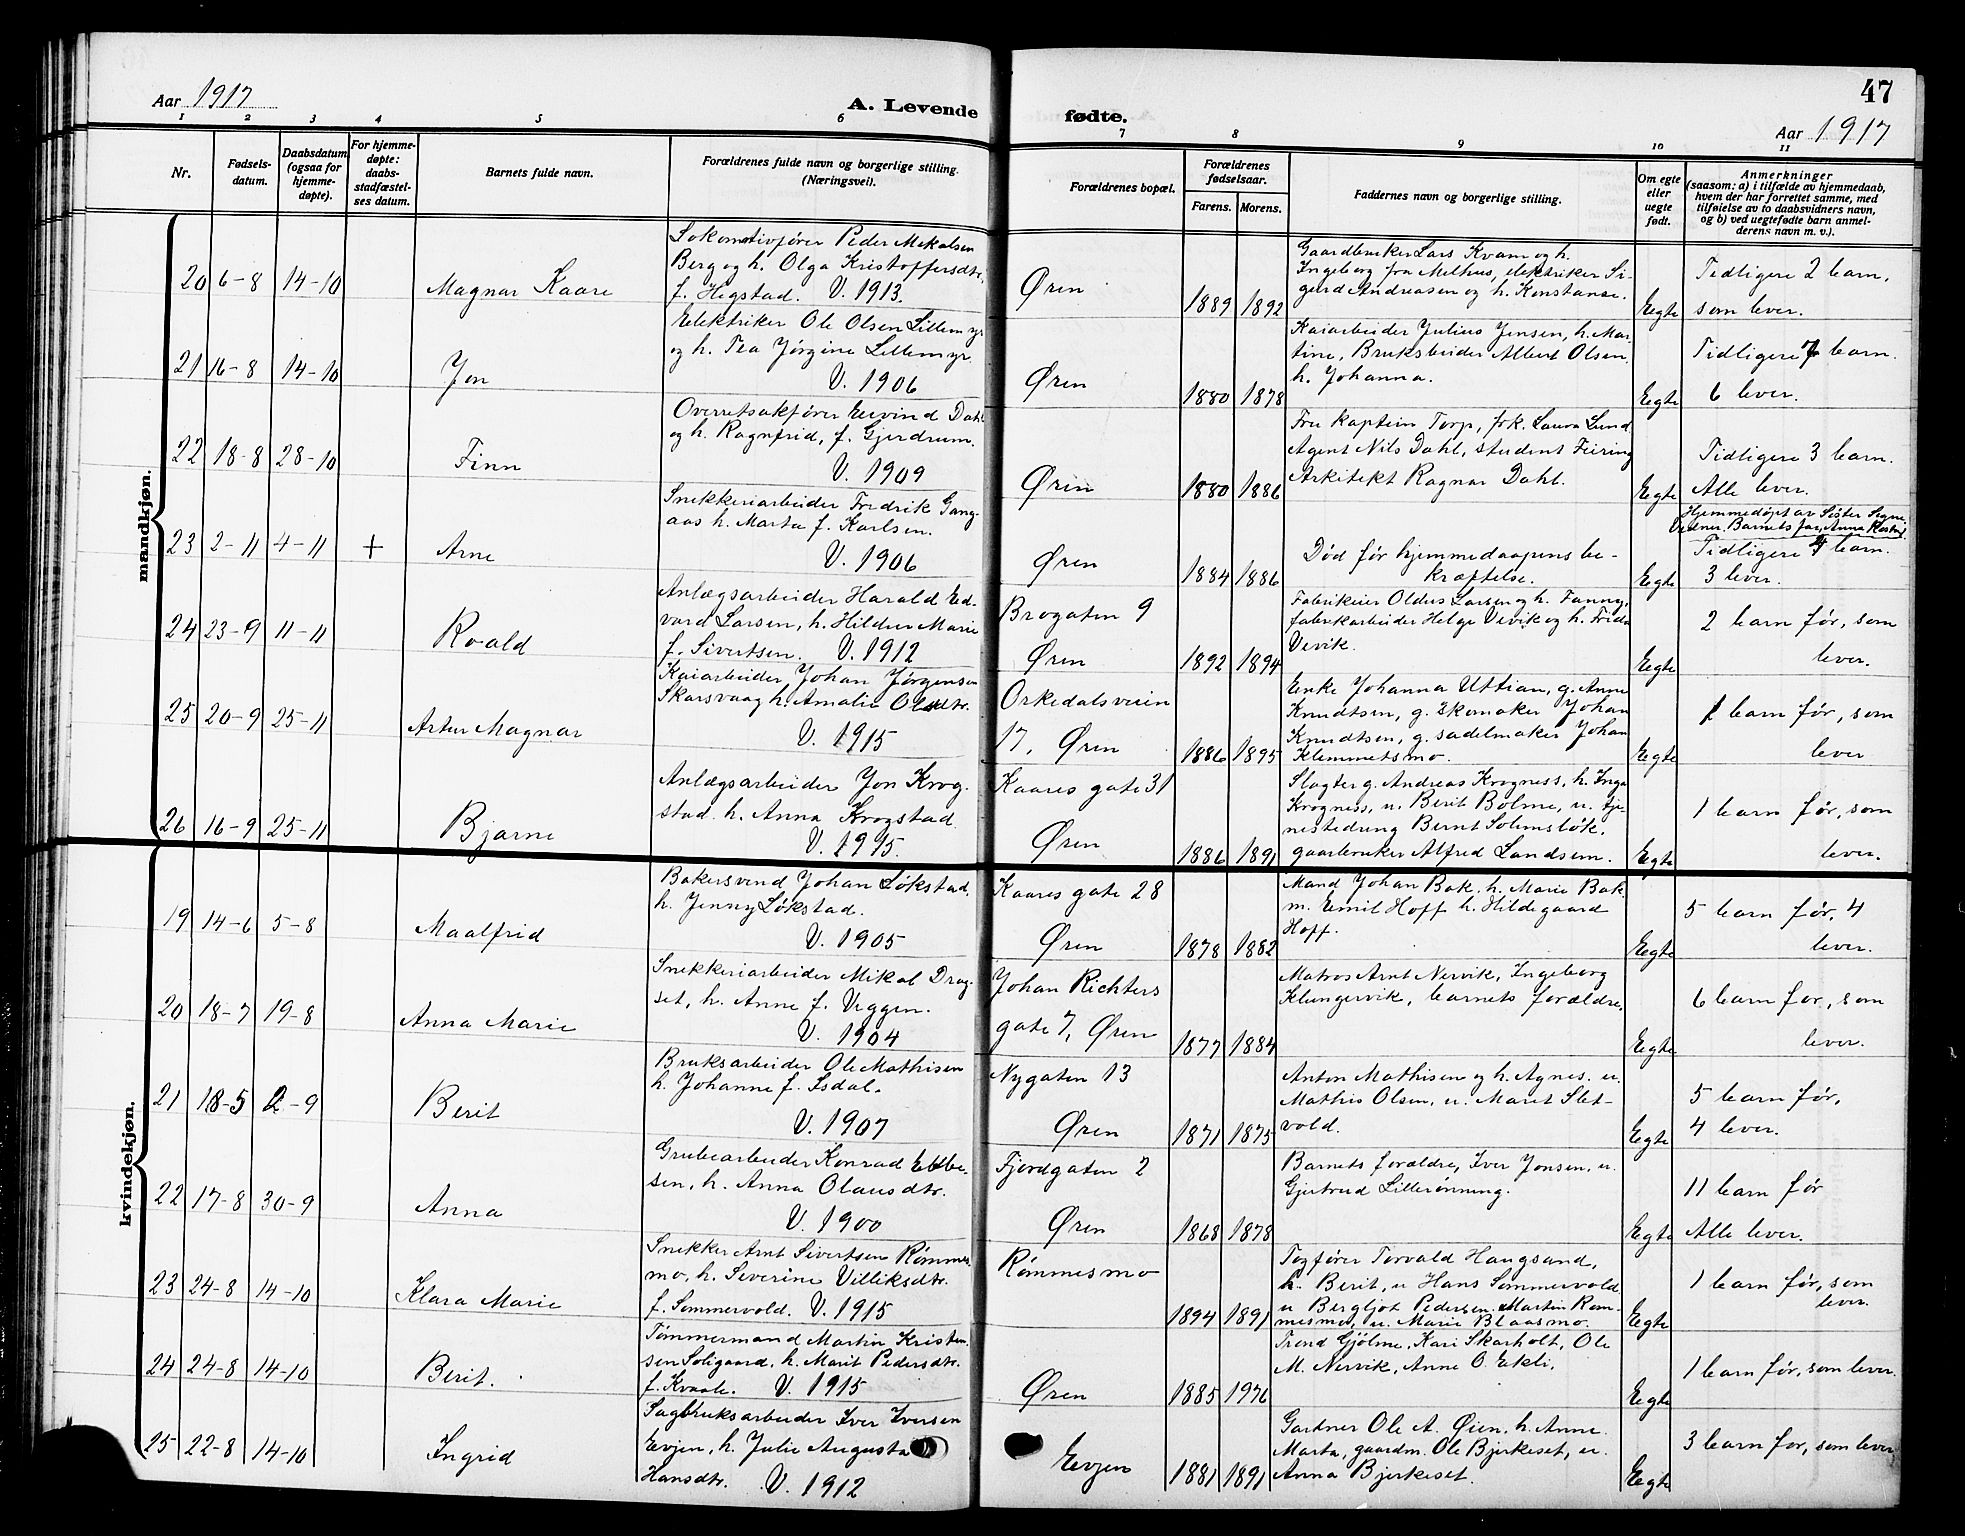 47
Aar 1917
A. Levende
fødte.
Aar 1917
1 2 3 4 5 6 7 8 9 10 11
Nr.
Fødsels-
datum.
Daabsdatum
(ogsaa for
hjemme-
døpte).
For hjemme-
døpte:
daabs-
stadfæstel-
ses datum.
Barnets fulde navn.
Forældrenes fulde navn og borgerlige stilling.
(Næringsvei).
Forældrenes bopæl.
Forældrenes
fødselsaar.
Farens. Morens.
Faddernes navn og borgerlige stilling.
Om egte
eller
uegte
født.
Anmerkninger
(saasom: a) i tilfælde av hjemmedaab,
hvem der har forrettet samme, med
tilføielse av to daabsvidners navn,
og b) ved uegtefødte barn anmel-
derens navn m. v.).
mandkjøn.
20 6-8 14-10
Magnar Kaare
Lokomotivfører Peder Mikalsen
Berg og h. Olga Kristoffersdtr.
f. Hegstad. V. 1913.
Øren
1889 1892
Gaardbruker Lars Kvam og h.
Ingeborg fra Melhus, elektriker Si-
gurd Andreasen og h. Konstanse.
Egte
Tidligere 2 barn,
som lever.
21 16-8 14-10
Jon
Elektriker Ole Olsen Lillemyr
og h. Tea Jørgine Lillemyr.
V. 1906
Øren
1880 1878
Kaiarbeider Julius Jensen, h. Mar-
tine, Bruksbeider Albert Olsen
h. Johanna.
Egte
Tidligere 7 barn.
6 lever.
22 18-8 28-10
Finn
Overretsakfører Eivind Dahl
og h. Ragnfrid, f. Gjerdrum.
V. 1909
Øren
1880 1886
Fru kaptein Torp, frk. Laura Lund
Agent Nils Dahl, student Feiring
Arkitekt Ragnar Dahl.
Egte
Tidligere 3 barn.
Alle lever.
23 2-11 4-11 +
Arne
Snekkeriarbeider Fredrik Gang-
aas h. Marta f. Karlsen.
V. 1906
Øren
1884 1886
Død før hjemmedaapens be-
kræftelse.
Egte
Hjemmedøpt av Sister Signe
Vidner. Barnets far, Anna
Tidligere 4 barn.
3 lever.
24 23-9 11-11
Roald
Anlægsarbeider Harald Ed-
vard Larsen, h. Hildur Marie
f. Sivertsen. V. 1912
Brogaten 9
Øren
1892 1894
Fabrikeier Oldus Larsen og h. Fanny,
fabrikarbeider Helge Vevik og h. Frida
Vevik.
Egte
2 barn før, som
lever.
25 20-9 25-11
Artur Magnar
Kaiarbeider Johan Jørgensen
Skarsvaag h. Amalie Olsdtr.
V. 1915
Orkedalsveien
17, Øren
1886 1895
Enke Johanna Uttian, g. Anne
Knudtsen, g. skomaker Johan
Knudtsen, g. sadelmaker Johan
Klemmetsmo.
Egte
1 barn før, som
lever
26 16-9 25-11
Bjarne
Anlægsarbeider Jon Krog-
stad. h. Anna Krogstad
V. 1915.
Kaares gate 31
Øren
1886 1891
Slagter g. Andreas Krogness, h. Inga
Krogness, u. Berit Bolme, u. tje-
nestedreng Bernt Solemsløk.
gaarbruker Alfred Landsem.
Egte
1 barn før, som
lever.
kvindekjøn.
19 14-6 5-8
Maalfrid
Bakersvend Johan Løkstad,
h. Jenny Løkstad.
V. 1905
Kaares gate 28
Øren
1878 1882
Mand Johan Bak. h. Marie Bak
m. Emil Hoff h. Hildegaard
Hoff.
Egte
5 barn før, 4
lever.
20 18-7 19-8
Anna Marie
Snekkeriarbeider Mikal Drag-
set, h. Anne f. Viggen.
V. 1904
Johan Richters
gate 7, Øren
1877 1884
Matros Arnt Nervik, Ingeborg
Klungervik, barnets forældre.
Egte
6 barn før, som
lever.
21 18-5 2-9
Berit
Bruksarbeider Ole Mathisen
h. Johanne f. Isdal.
V. 1907
Nygaten 13
Øren
1871 1875
Anton Mathisen og h. Agnes. u.
Mathis Olsen, u. Marit Slet-
vold.
Egte
5 barn før,
4 lever.
22 17-8 30-9
Anna
Grubearbeider Konrad Ebbe-
sen, h. Anna Olausdtr.
V. 1900
Fjordgaten 2
Øren
1868 1878
Barnets forældre, Iver Jonsen, u.
Gjertrud Lillerønning.
Egte
11 barn før
Alle lever.
23 24-8 14-10
Klara Marie
Snekker Arnt Sivertsen Rømmes-
mo, h. Severine Villiksdtr.
f. Sommervold. V. 1915
Rømmesmo
1894 1891
Togfører Torvald Haugsand,
h. Berit, u Hans Sommervold
u Bergljot Pedersen. Martin Røm-
mesmo, u. Marie Blaasmo.
Egte
1 barn før, som
lever.
24 24-8 14-10
Berit.
Tømmermand Martin Kristen-
sen Soligaard, h. Marit Pedersdtr.
f. Kvaale. V. 1915
Øren
1885 1976
Trond Gjølme, Kari Skarholt, Ole
M. Nervik, Anne O. Ekli.
Egte
1 barn før, som lever.
25 22-8 14-10
Ingrid
Sagbruksarbeider Iver Iversen
Evjen, h. Julie Augusta
Hansdtr. V. 1912
Evjen
1881 1891
Gartner Ole A. Øien, h. Anne
Marta, gaardm. Ole Bjerkeset, u.
Anna Bjerkeset.
Egte
3 barn før, som lever